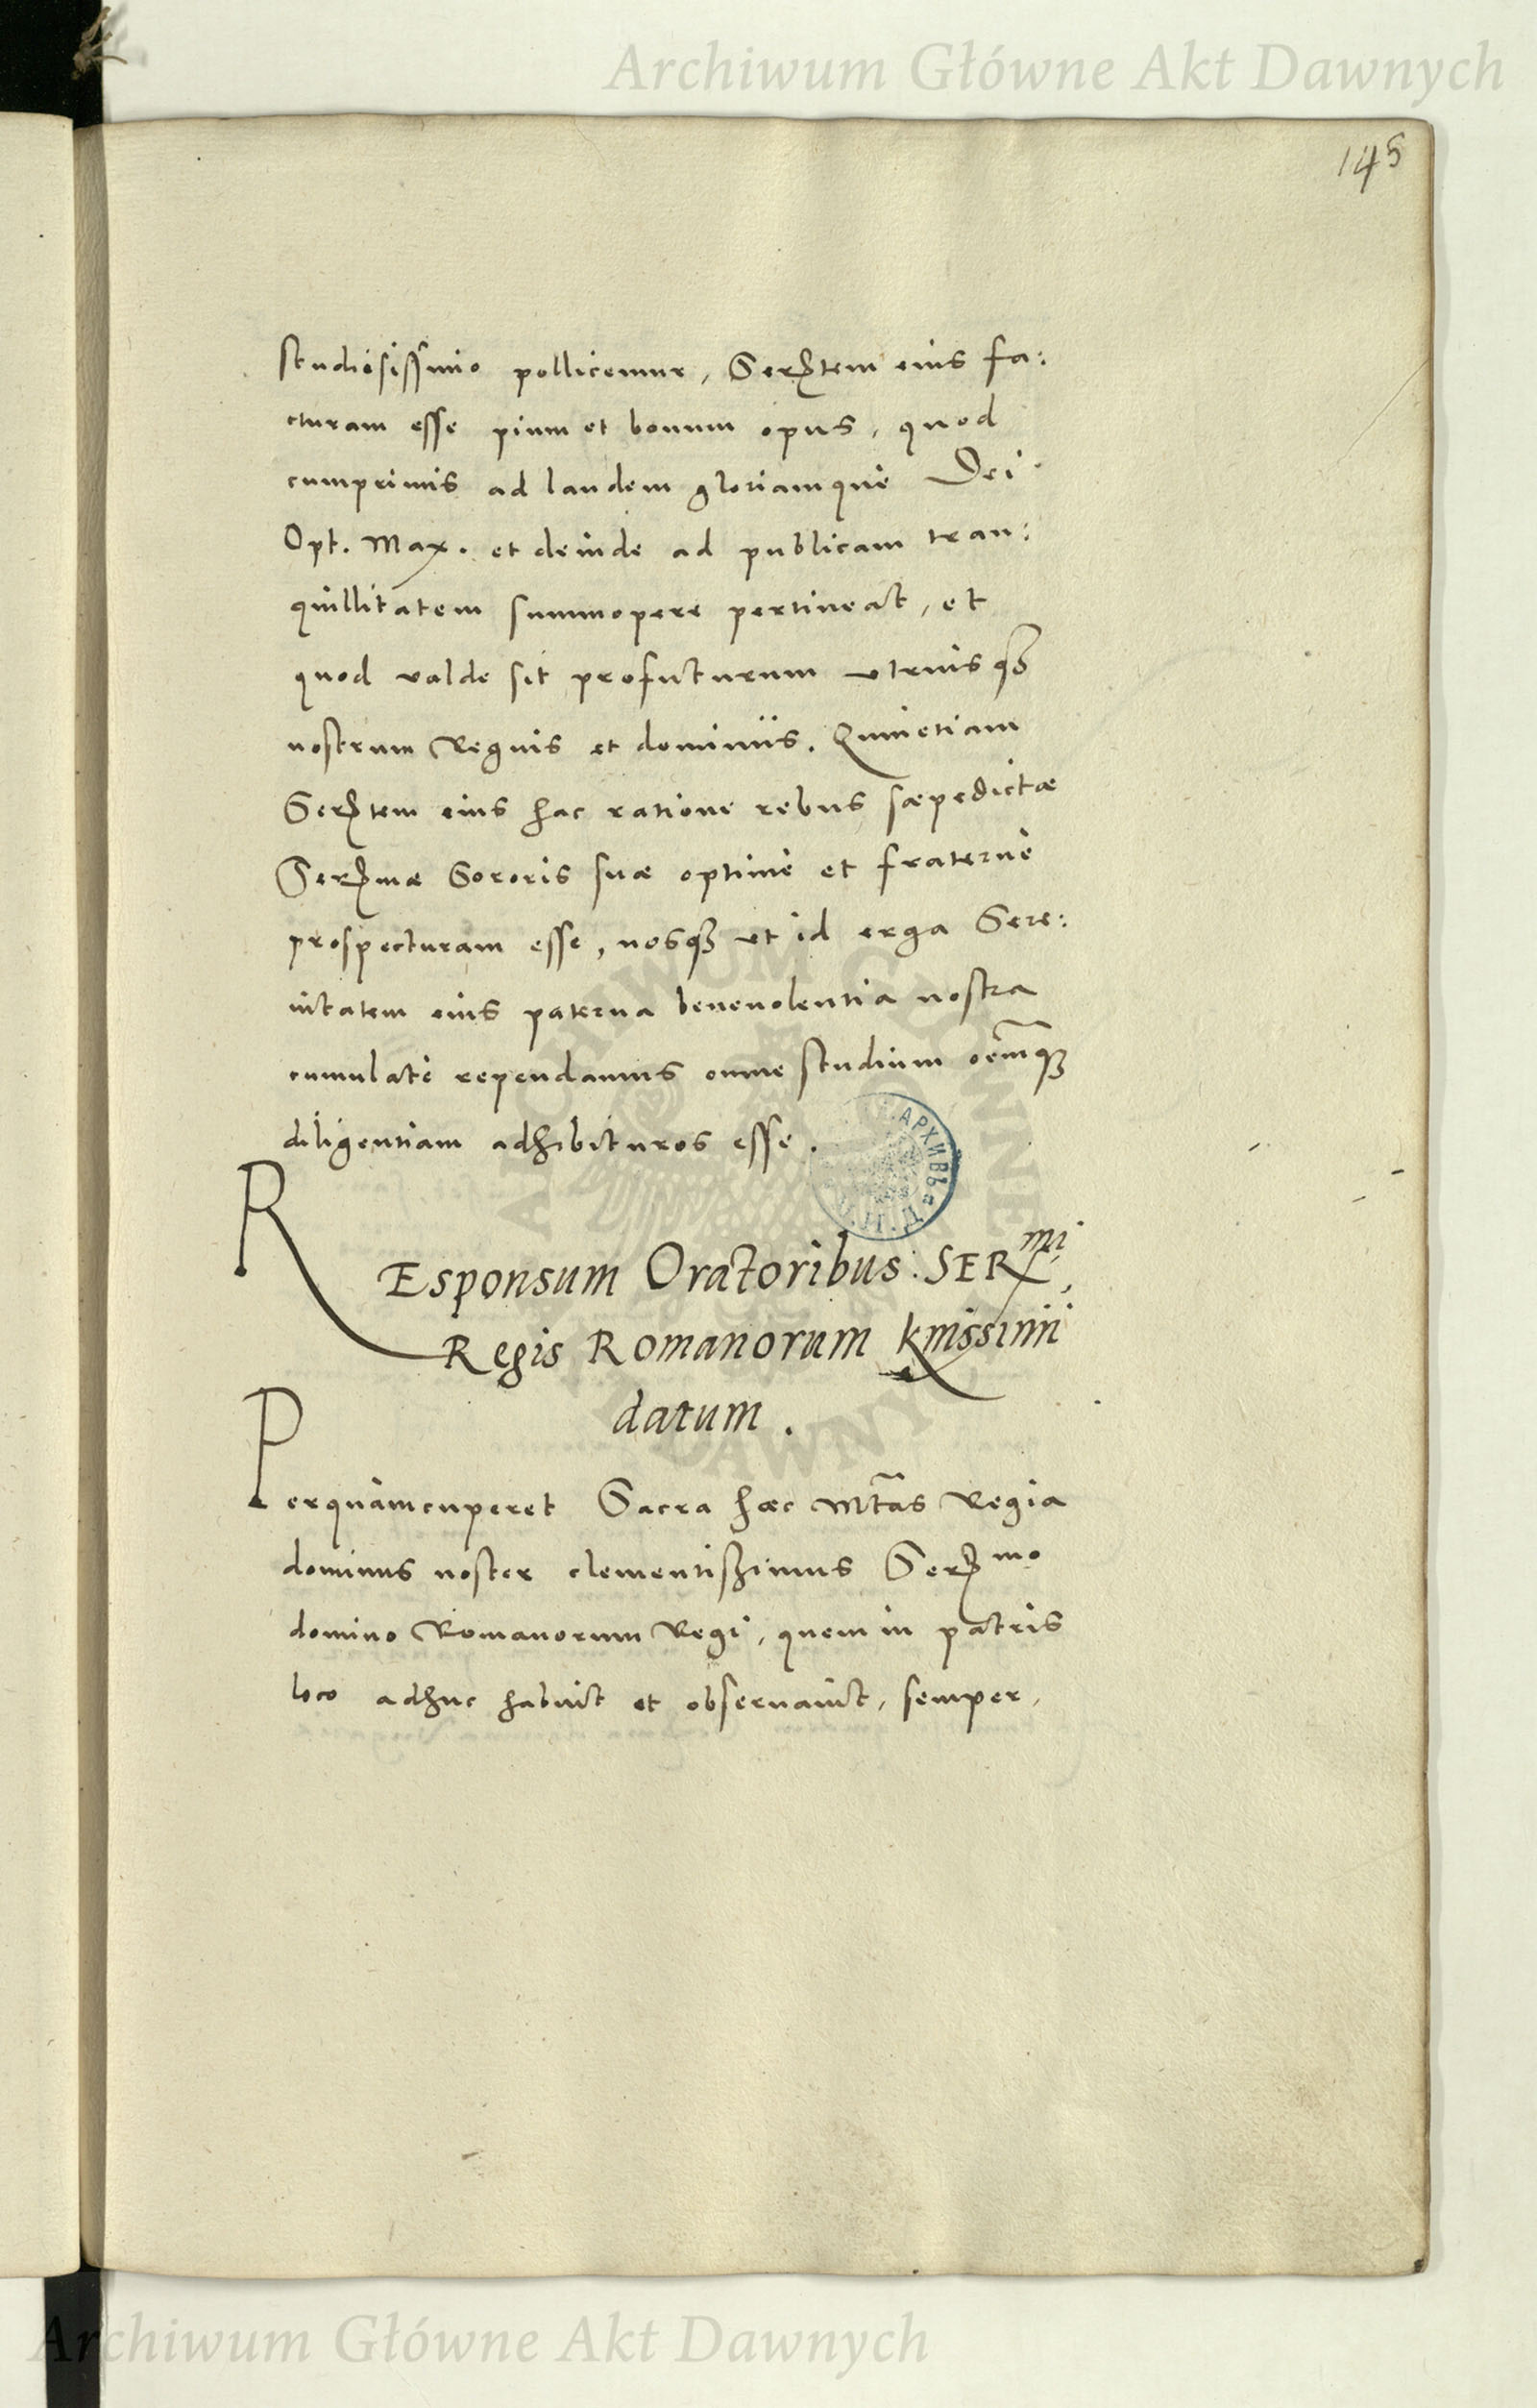 Archiwum Główne Akt Dawnych
145
studiosissimo pollicemur, Serᵗtem eius fa:
cturam esse pium et bonum opus, quod
cumprimis ad laudem gloriamque Dei
Opt. Max. et deinde ad publicam tran:
quillitatem summopere pertineat, et
quod valde sit profuturum utriusqꝫ
nostrum Regnis et dominiis. Quinetiam
Serᵗtem eius hac ratione rebus sæpedictæ
Serᵐmæ Sororis suæ optimè et fraternè
prospecturam esse, nosqꝫ ut id erga Sere:
nitatem eius paterna benevolentia nostra
cumulatè rependamus omne studium oēmqꝫ
diligentiam adhibituros esse.
REsponsum Oratoribus SERmi
Regis Romanorum
datum.
Perquàmcuperet Sacra hæc Mtās Regia
dominus noster clementissimus Sermo
domino Romanorum Regi, quem in patris
loco adhuc habuit et observavit, semper,
Archiwum Główne Akt Dawnych